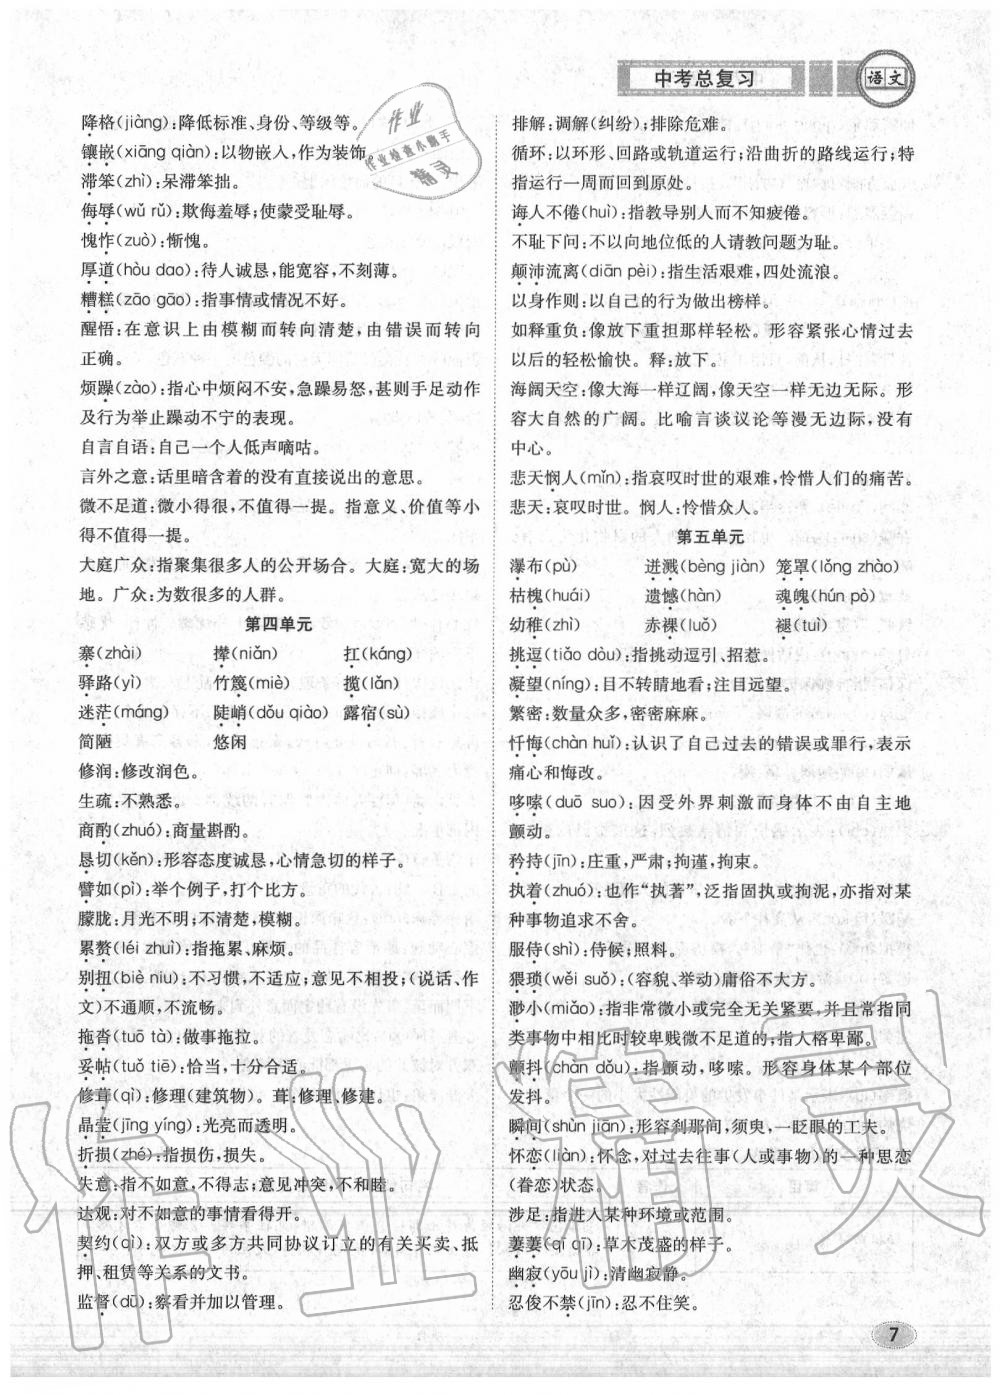 中考总复习
语文
降格(jiàng):降低标准、身份、等级等。
镶嵌(xiāng qiàn):以物嵌入,作为装饰。
滞笨(zhì):呆滞笨拙。
侮辱(wǔ rǔ):欺侮羞辱;使蒙受耻辱。
愧怍(zuò):惭愧。
厚道(hòu dao):待人诚恳,能宽容,不刻薄。
糟糕(zāo gāo):指事情或情况不好。
醒悟:在意识上由模糊而转向清楚,由错误而转向
正确。
烦躁(zào):指心中烦闷不安,急躁易怒,甚则手足动作
及行为举止躁动不宁的表现。
自言自语:自己一个人低声嘀咕。
言外之意:话里暗含着的没有直接说出的意思。
微不足道:微小得很,不值得一提。指意义、价值等小
得不值得一提。
大庭广众:指聚集很多人的公开场合。大庭:宽大的场
地。广众:为数很多的人群。
第四单元
寨(zhài) 撵(niǎn) 扛(káng)
驿路(yì) 竹篾(miè) 揽(lǎn)
迷茫(máng) 陡峭(dǒu qiào) 露宿(sù)
简陋 悠闲
修润:修改润色。
生疏:不熟悉。
商酌(zhuó):商量斟酌。
恳切(kěn):形容态度诚恳,心情急切的样子。
譬如(pì):举个例子,打个比方。
朦胧:月光不明;不清楚,模糊。
累赘(léi zhuì):指拖累、麻烦。
别扭(biè niu):不习惯,不适应;意见不相投;(说话、作
文)不通顺,不流畅。
拖沓(tuō tà):做事拖拉。
妥帖(tuǒ tiē):恰当,十分合适。
修葺(qì):修理(建筑物)。葺:修理、修建。
晶莹(jīng yíng):光亮而透明。
折损(zhé):指损伤,损失。
失意:指不如意,不得志;意见冲突,不和睦。
达观:对不如意的事情看得开。
契约(qì):双方或多方共同协议订立的有关买卖、抵
押、租赁等关系的文书。
监督(dū):察看并加以管理。
排解:调解(纠纷);排除危难。
循环:以环形、回路或轨道运行;沿曲折的路线运行;特
指运行一周而回到原处。
诲人不倦(huì):指教导别人而不知疲倦。
不耻下问:不以向地位低的人请教问题为耻。
颠沛流离(diān pèi):指生活艰难,四处流浪。
以身作则:以自己的行为做出榜样。
如释重负:像放下重担那样轻松。形容紧张心情过去
以后的轻松愉快。释:放下。
海阔天空:像大海一样辽阔,像天空一样无边无际。形
容大自然的广阔。比喻言谈议论等漫无边际,没有
中心。
悲天悯人(mǐn):指哀叹时世的艰难,怜惜人们的痛苦。
悲天:哀叹时世。悯人:怜惜众人。
第五单元
瀑布(pù) 迸溅(bèng jiàn) 笼罩(lǒng zhào)
枯槐(huái) 遗憾(hàn) 魂魄(hún pò)
幼稚(zhì) 赤裸(luǒ) 褪(tuì)
挑逗(tiǎo dòu):指挑动逗引、招惹。
凝望(níng):目不转睛地看;注目远望。
繁密:数量众多,密密麻麻。
忏悔(chàn huǐ):认识了自己过去的错误或罪行,表示
痛心和悔改。
哆嗦(duō suo):因受外界刺激而身体不由自主地
颤动。
矜持(jīn):庄重,严肃;拘谨,拘束。
执着(zhuó):也作“执著”,泛指固执或拘泥,亦指对某
种事物追求不舍。
服侍(shì):侍候;照料。
猥琐(wěi suǒ):(容貌、举动)庸俗不大方。
渺小(miǎo):指非常微小或完全无关紧要,并且常指同
类事物中相比时较卑贱微不足道的;指人格卑鄙。
颤抖(chàn dǒu):指颤动,哆嗦。形容身体某个部位
发抖。
瞬间(shùn jiān):形容刹那间,须臾,一眨眼的工夫。
怀恋(liàn):怀念,对过去往事(人或事物)的一种思恋
(眷恋)状态。
涉足:指进入某种环境或范围。
萋萋(qī qī):草木茂盛的样子。
幽寂(yōu jì):清幽寂静。
忍俊不禁(jīn):忍不住笑。
7
作业
作业检查小助手
精灵
作业精灵